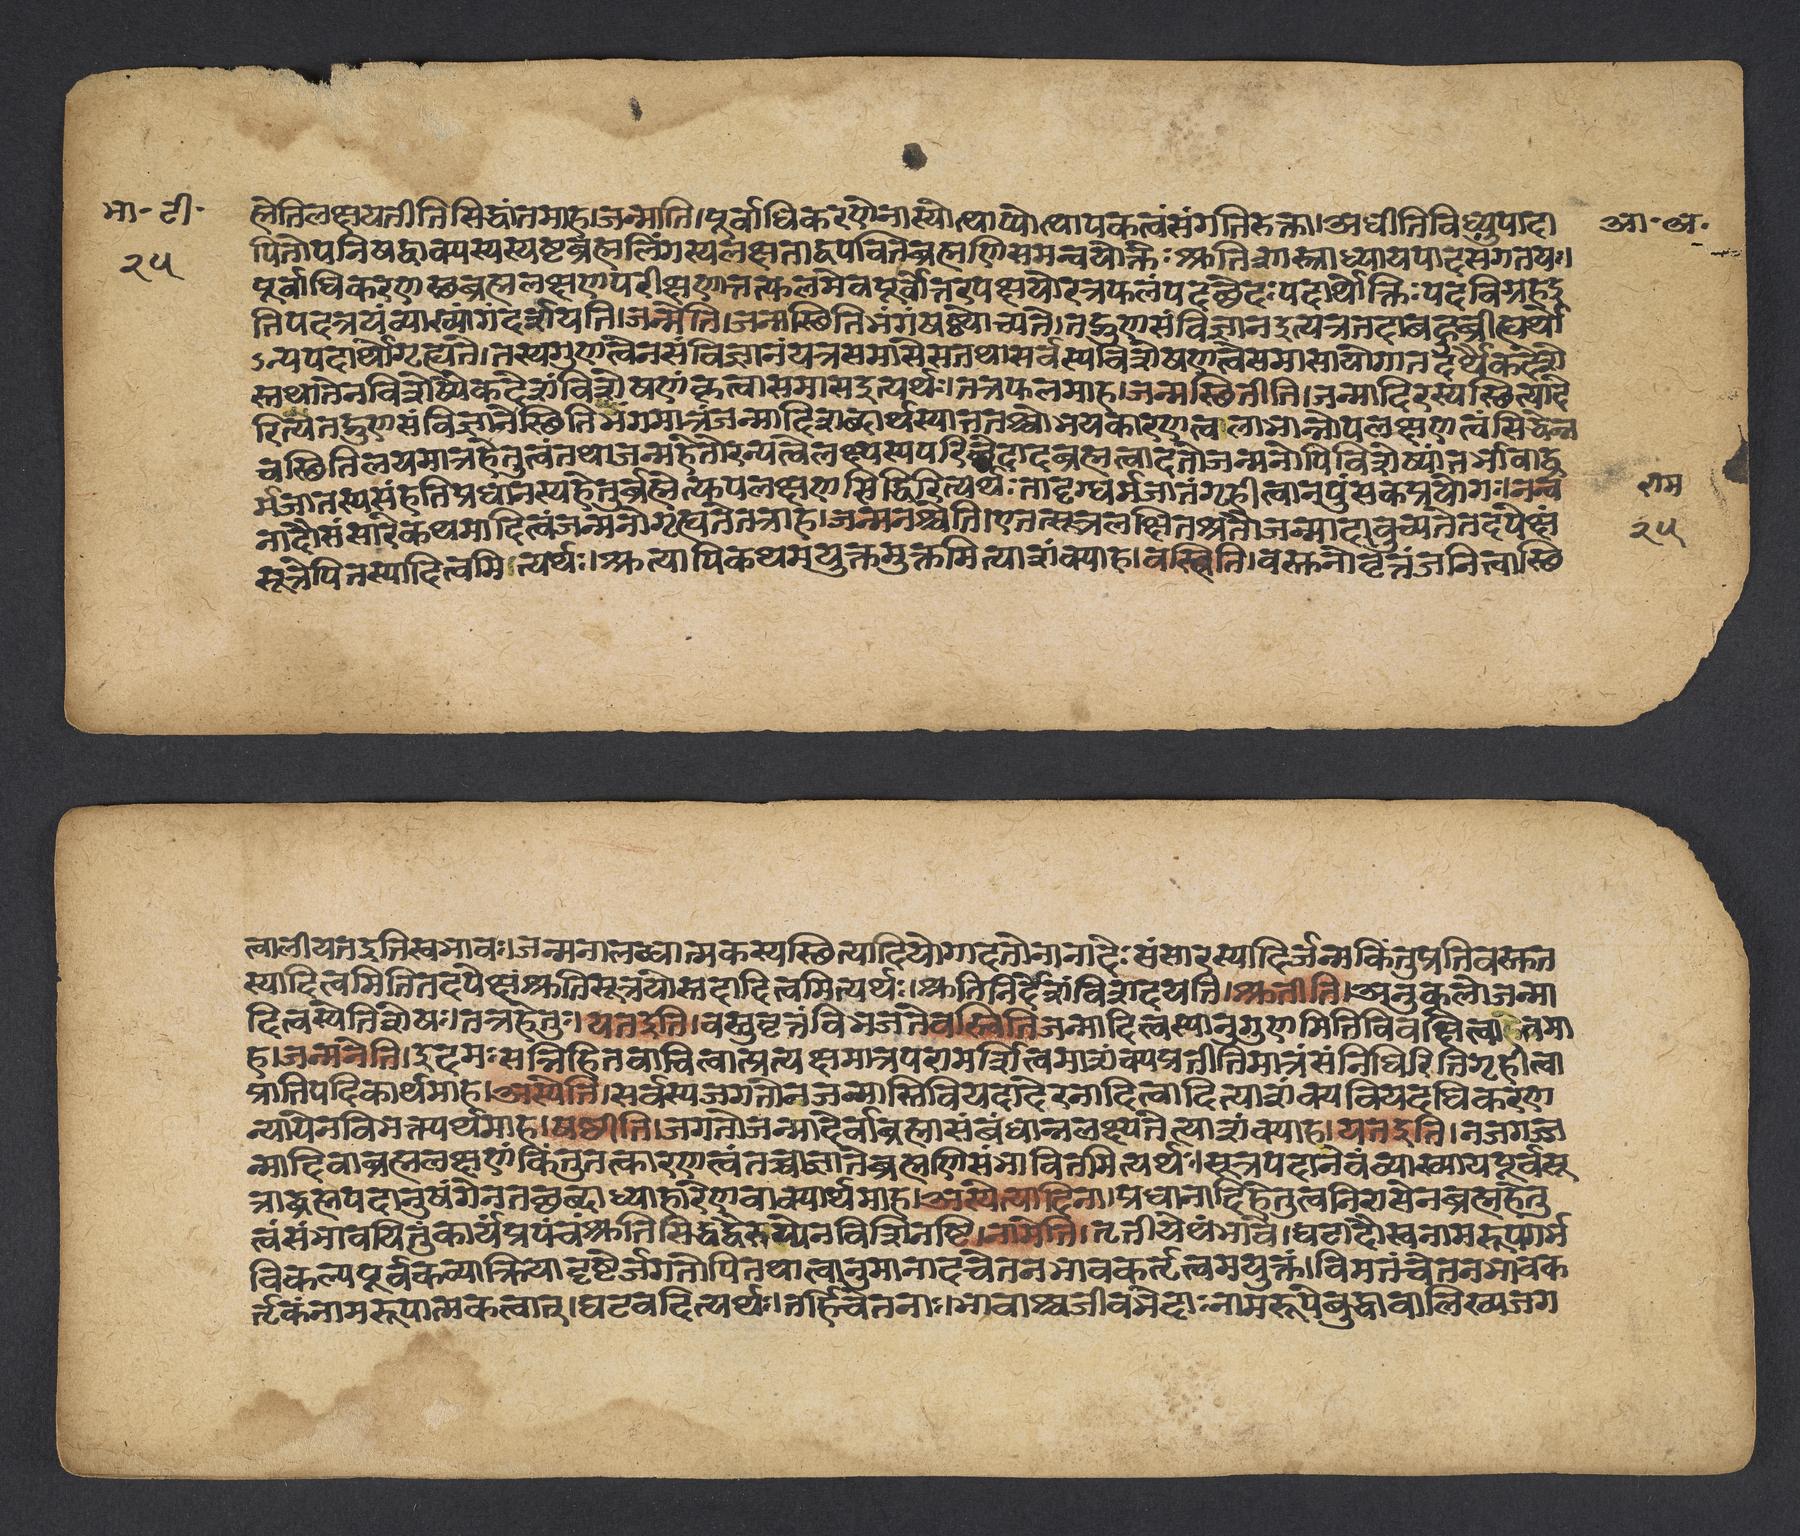 भा॰ टी॰
२५
आ॰ अ॰
ह्मेतिलक्षयतीतिसिद्धांतमाह।जन्माति।पूर्वाधिकरणेनास्योत्थाप्योत्थापकत्वंसंगतिरुक्ता।अधीतिविध्युपादा
पितोपनिषद्वाक्यस्यस्पष्टब्रह्मलिंगस्यलक्षताद्वपवितेब्रह्मणिसमन्वयोक्तेःश्रुतिशास्त्राध्यायपादसंगतयः।
पूर्वाधिकरणस्थब्रह्मलक्षणपरीक्षणात्तत्फलमेवपूर्वोत्तरपक्षयोरत्रफलंपदछेदःपदार्थोक्तिःपदविग्रहइ
तिपदत्रयंव्याख्यांगंदर्शयति।जन्मेति।जन्मस्थितिभंगंषष्ठ्योच्यते।तद्गुणसंविज्ञानइत्यत्रतदाबहुब्रीह्यर्थो
ऽन्यपदार्थोगृह्यते।तस्यगुणत्वेनसंविज्ञानंयत्रसमासेसतथासर्वस्यविशेषणत्वेसमासायोगात्तदर्थैकदेशो
स्तथातेनविशेष्यैकदेशंविशेषणंकृत्वासमासइत्यर्थः।तत्रफलमाह।जन्मस्थितीति।जन्मादिरस्यस्थित्यादे
रित्येतद्गुणसंविज्ञानेस्थितिभंगमात्रंजन्मादिशब्दार्थस्यात्ततश्चोभयकारणत्वलाभान्नोपलक्षणत्वंसिध्येन्न
चस्थितिलयमात्रहेतुत्वंतथाजन्महेतोरन्यत्वेलक्ष्यस्यपरिछेदादब्रह्मत्वादतोजन्मनोपिविशेष्यांतर्भावाद्ध
र्मजातस्यसंहतिप्रधानस्यहेतुर्ब्रह्मेत्युपलक्षणसिद्धिरित्यर्थःतादृग्धर्मजातंगृहीत्वानपुंसकप्रयोगः।नन्व
नादौसंसारेकथमादित्वंजन्मनोगृह्यतेतत्राह।जन्मनश्चेति।एतत्सूत्रलक्षितश्रुतौजन्मादावुच्यतेतदपेक्षं
सूत्रेपितस्यादित्वमित्यर्थः।श्रुत्यापिकथमयुक्तमुक्तमित्याशंक्याह।वस्त्विति।वस्तुनोवृत्तंजनित्वास्थि
राम
२५
त्वालीयतइतिस्वभावः।जन्मनालब्धात्मकस्यस्थित्यादियोगादतोनानादेःसंसारस्यादिर्जन्मकिंतुप्रतिवस्तुत
स्यादित्वमितितदपेक्षंश्रुतिसूत्रयोस्तदादित्वमित्यर्थः।श्रुतिनिर्देशंविशदयति।श्रुतीति।अनुकूलोजन्मा
दित्वस्येतिशेषः।तत्रहेतुः।यतइति।वस्तुवृत्तंविभजतेवस्त्वितिजन्मादित्वस्यानुगुणमितिविवक्षित्वाहेतुमा
ह।जन्मनेति।इदमःसन्निहितवाचित्वात्प्रत्यक्षमात्रपरामर्शित्वमाशंक्यप्रतीतिमात्रंसंनिधिरितिगृहीत्वा
प्रातिपदिकार्थमाह।अस्येति।सर्वस्यजगतोनजन्मास्तिवियदादेरनादित्वादित्याशंक्यवियदधिकरण
न्यायेनविभक्त्यर्थमाह।षष्ठीति।जगतोजन्मादेर्वाब्रह्मासंबंधान्नलक्ष्यतेत्याशंक्याह।यतइति।नजगज्ज
न्मादिवाब्रह्मलक्षणंकिंतुतत्कारणत्वंतच्चाज्ञातेब्रह्मणिसंभावितमित्यर्थः।सूत्रपदान्येवंव्याख्यायपूर्वसू
त्राद्ब्रह्मपदानुषंगेनतच्छब्दाध्याहारेणवाक्यार्थमाह।अस्येत्यादिना।प्रधानादिहेतुत्वनिरासेनब्रह्महेतु
त्वंसंभावयितुंकार्यप्रपंचंश्रुतिसिद्धद्वैरूप्येनविशिनष्टि।नामेति।तृतीयेथंभावे।घटादौस्वनामरूपगर्भ
विकल्पपूर्वकव्याक्रियादृष्टेर्जगतोपितथात्वानुमानादचेतनभावकर्तृत्वमयुक्तं।विमतंचेतनभावक
र्तृकंनामरूपात्मकत्वात्।घटवदित्यर्थः।तर्हिचेतनाः।भावाश्चजीवभेदाःनामरूपेबुद्धावालिख्यजग